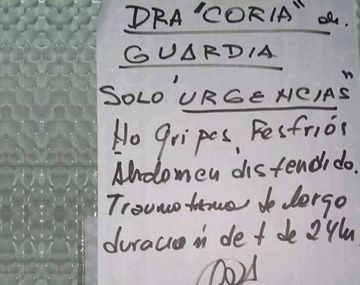 DRA "CORIA" de.
GUARDIA
SOLO "URGENCIAS"
No gripes, Resfrios
Abdomen distendido.
Traumatismo de largo
duración de + de 24hs